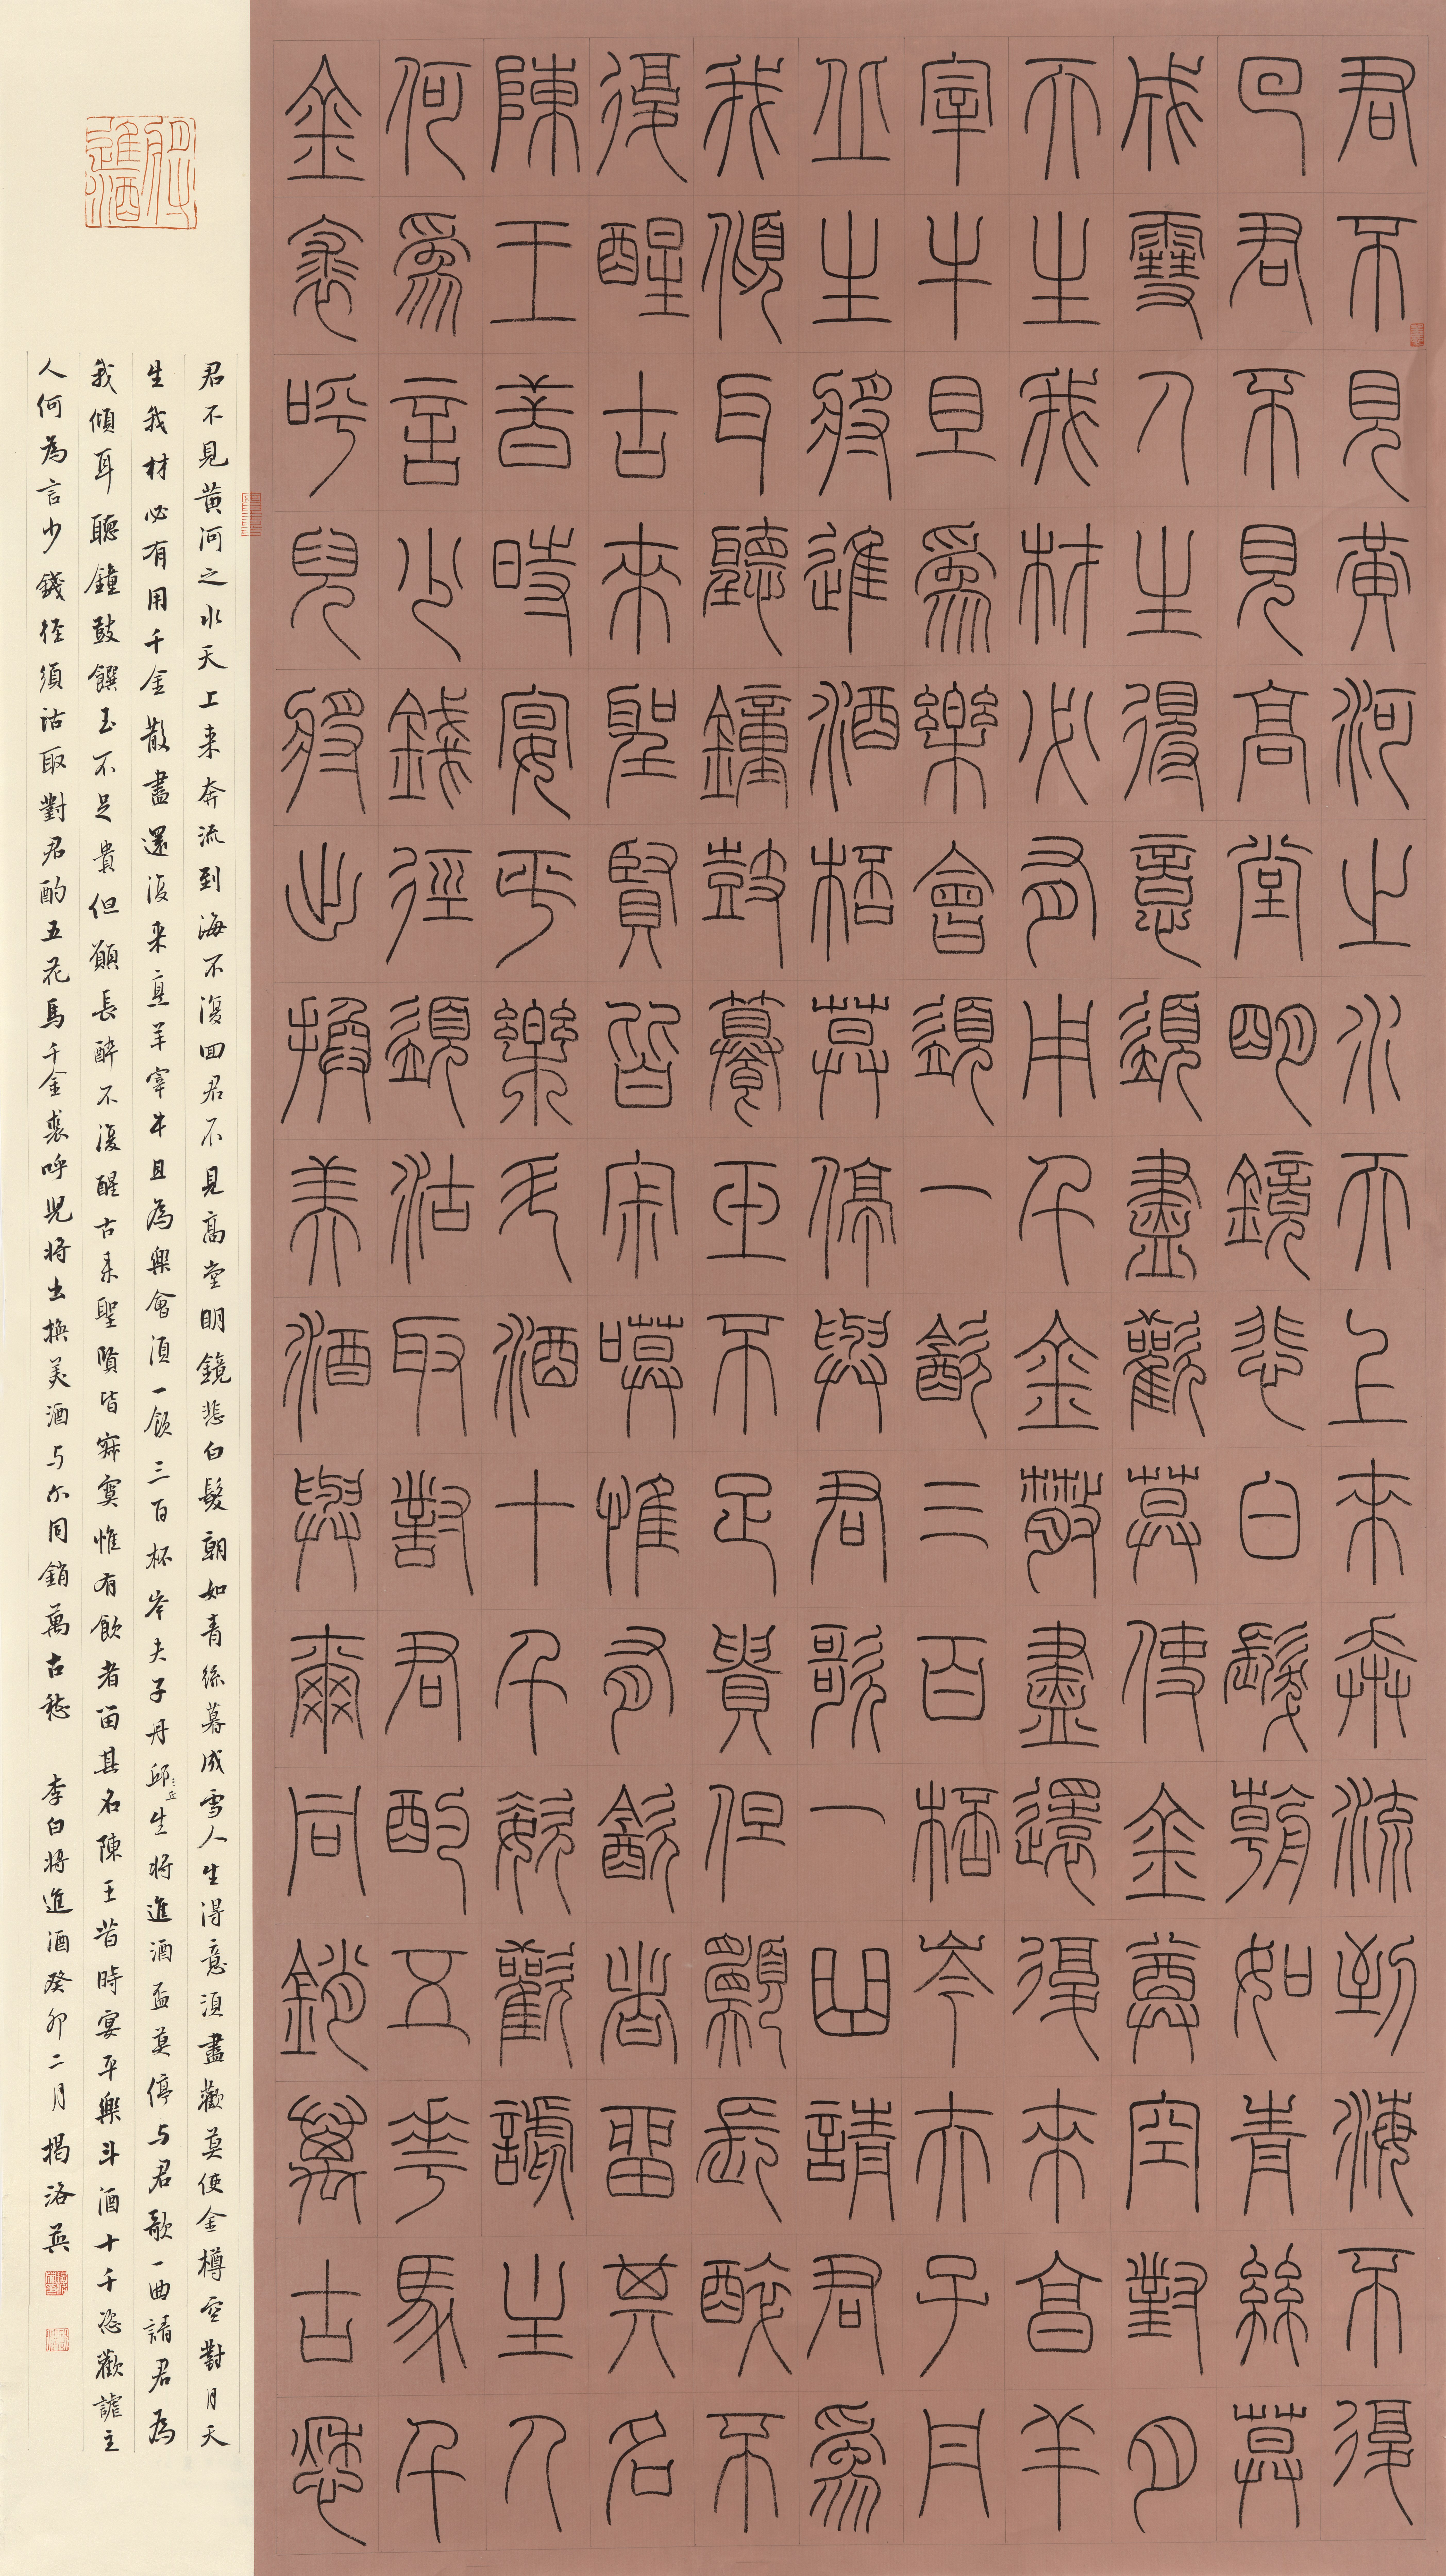 君不見黃河之水天上來奔流到海不復
回君不見高堂明鏡悲白髮朝如青絲暮
成雪人生得意須盡歡莫使金尊空對月
天生我材必有用千金散盡還復來亯羊
宰牛且爲樂會須一飲三百桮岑夫子丹
丘生將進酒桮莫停與君歌一曲請君爲
我傾耳聽鐘鼓饌玉不足貴但願長醉不
復醒古來聖賢皆寂嗼惟有飲者留其名
陳王昔時宴平樂斗酒十千恣歡謔主人
何爲言少錢徑須沽取對君酌五華馬千
金裘呼兒將出換美酒與爾同銷萬古愁
將進酒
君不見黃河之水天上来奔流到海不復回君不見高堂明鏡悲白髮朝如青絲暮成雪人生得意須盡歡莫使金樽空對月天
生我材必有用千金散盡還復来烹羊宰牛且為樂會須一飲三百杯岑夫子丹邱丘生將進酒盃莫停与君歌一曲請君為
我傾耳聽鐘鼓饌玉不足貴但願長醉不復醒古来聖賢皆寂寞惟有飲者留其名陳王昔時宴平樂斗酒十千恣歡謔主
人何為言少錢徑須沽取對君酌五花馬千金裘呼兒將出換美酒与尔同銷萬古愁 李白將進酒癸卯二月揭洛英